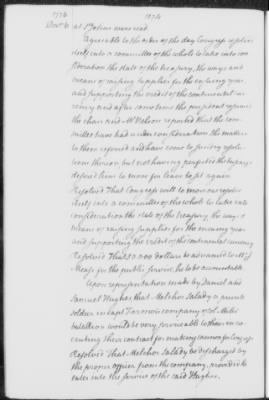 1776
1776
Decr 6
at St Johns
Agreeable to the order of the day Congress resolved
itself into a committee of the whole to take into con
sideration the state of the treasury, the ways and
means of raising supplies for the ensuing year
and supporting the credit of the continental cur
rency and after some time the president resumed
the chair and Mr Nelson reported that the com
mittee have had under consideration the matter
to them referred and have come to
but not having
desired him to move for leave to sit again
Resolved That Congress will to morrow resolve
itself into a committee of the whole to take into
consideration the state of the treasury the ways &
means of raising supplies for the ensuing year
and supporting the credit of the continental currency
Resolved That 2,000 Dollars be advanced to
Mease for the public service, he to be accountable
Upon representation made by Daniel and
Samuel Hughes, that Melchor Salady a private
soldier in capt company of col.
batallion would be very serviceable to them in exe
cuting their contract for making cannon for Congress
Resolved That Melchor Salady be discharged by
the proper officer from the company, provided he
enter into the service of the said Hughes.